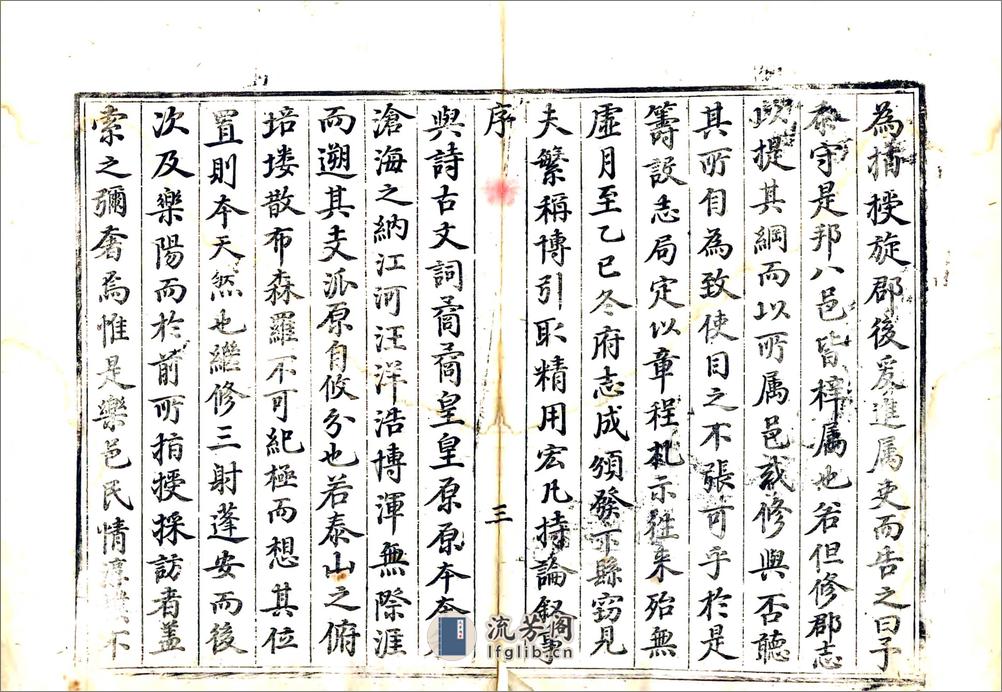 為指授旋郡後爰進属吏而告之曰予
忝守是邦八邑皆梓属也若但修郡志
以提其綱而以所属邑或修與否聽
其所自為致使目之不張可乎於是
籌設志局定以章程札示往来殆無
虚月至乙巳冬府志成頒發下縣窃見
夫繁稱博引取精用宏凡持論叙事
序
三
與詩古文詞喬喬皇皇原原本本
滄海之納江河汪洋浩博渾無際涯
而遡其支派原自攸分也若泰山之俯
培塿散布森羅不可紀極而想其位
置則本天然也繼修三射蓬安而後
次及樂陽而於前所指授採訪者盖
索之彌奢焉惟是樂邑民情不
流芳阁
lfglib.cn